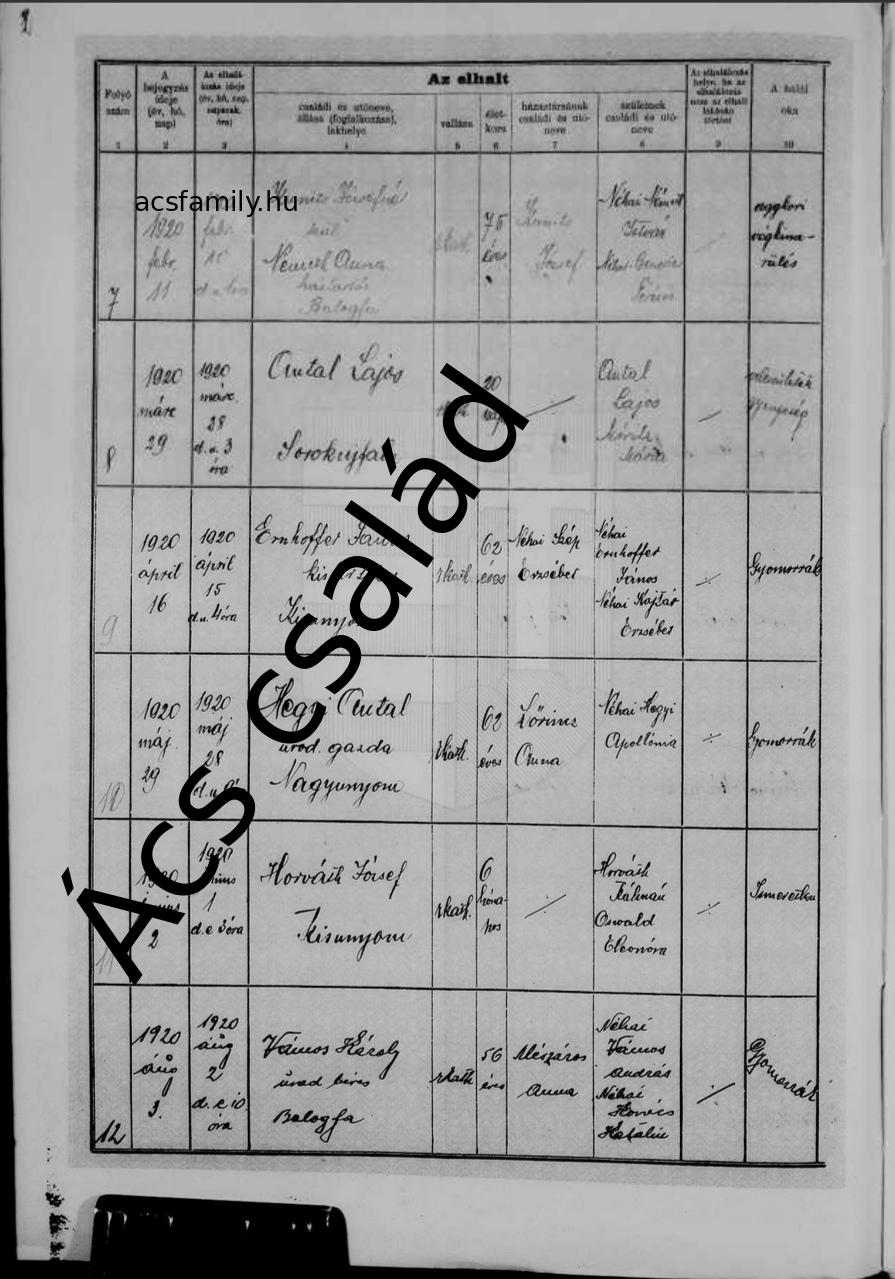 Az elhalt
Folyó
szám
A
bejegyzés
ideje
(év, hó,
nap)
Az elhalá-
lozás ideje
(év, hó, nap,
napszak,
óra)
családi és utóneve,
állása (foglalkozása),
lakhelye
vallása
élet-
kora
házastársának
családi és utó-
neve
szüleinek
családi és utó-
neve
Az elhalálozás
helye, ha az
elhalálozás
nem az elhalt
lakásán
történt
A halál
oka
1
2
3
4
5
6
7
8
9
10
acsfamily.hu
7
1920
febr.
11
febr.
Németh Anna
háztartás
Balogfa
éves
József
Néhai Németh
István
Teréz
aggkori
végkime-
rülés
8
1920
márc
29
1920
márc.
28
d.u. 3
óra
Antal Lajos
Sorokujfalu
20
Antal
Lajos
Mária
gyengeség
9
1920
ápril
16
1920
ápril
15
d.u. 4 óra
Ernhoffer János
rkath.
62
éves
Néhai Szép
Erzsébet
Néhai
Ernhoffer
János
Néhai Kajtár
Erzsébet
Gyomorrák
10
1920
máj.
29
1920
máj
28
d.u.
Hegyi Antal
urod. gazda
Nagyunyom
rkath.
62
éves
Lőrincz
Anna
Néhai Hegyi
Apollónia
Gyomorrák
11
2
1920
1
d.e 3 óra
Horváth József
Kisunyom
rkath.
6
hóna-
pos
Horváth
Kálmán
Oswald
Eleonóra
Ismeretlen
12
1920
aug
3.
1920
aug
2
d.e 10
óra
Vámos Károly
urad béres
Balogfa
rkath
56
éves
Mészáros
Anna
Néhai
Vámos
András
Néhai
Kovács
Katalin
Gyomorrák
Ács család